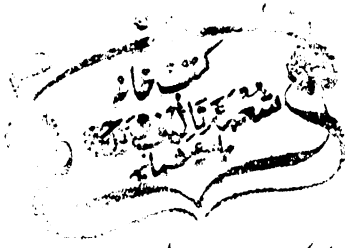 کتب خانہ
شعبہ تالیف و ترجمہ
جامعہ عثمانیہ